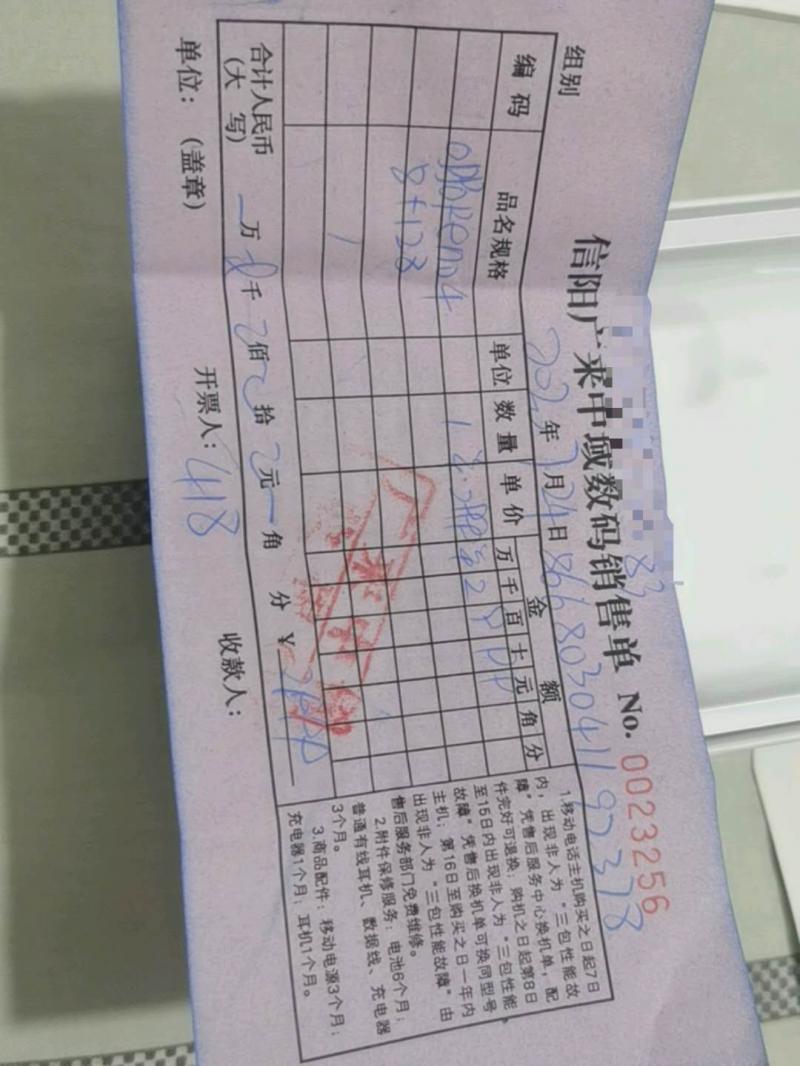 信阳广来中域数码销售单 No. 0023256
组别
年 月24日 866803041192378
编码 品名规格 单位 数量 单价 金额
万 千 百 十 元 角 分
OPPO Reno4 1
8+128
合计人民币
(大写) 万 千 佰 拾 元 角 分 ¥
单位：(盖章) 开票人：418 收款人：
1.移动电话主机购买之日起7日
内，出现非人为“三包性能故
障”凭售后服务中心换机单，配
件完好可退换；购机之日起第8日
至15日内出现非人为“三包性能
故障”凭售后换机单可换同型号
主机；第16日至购买之日一年内
出现非人为“三包性能故障”由
售后服务部门免费维修。
2.附件保修服务：电池6个月；
普通有线耳机、数据线、充电器
3个月。
3.商品配件：移动电源3个月；
充电器1个月；耳机1个月。